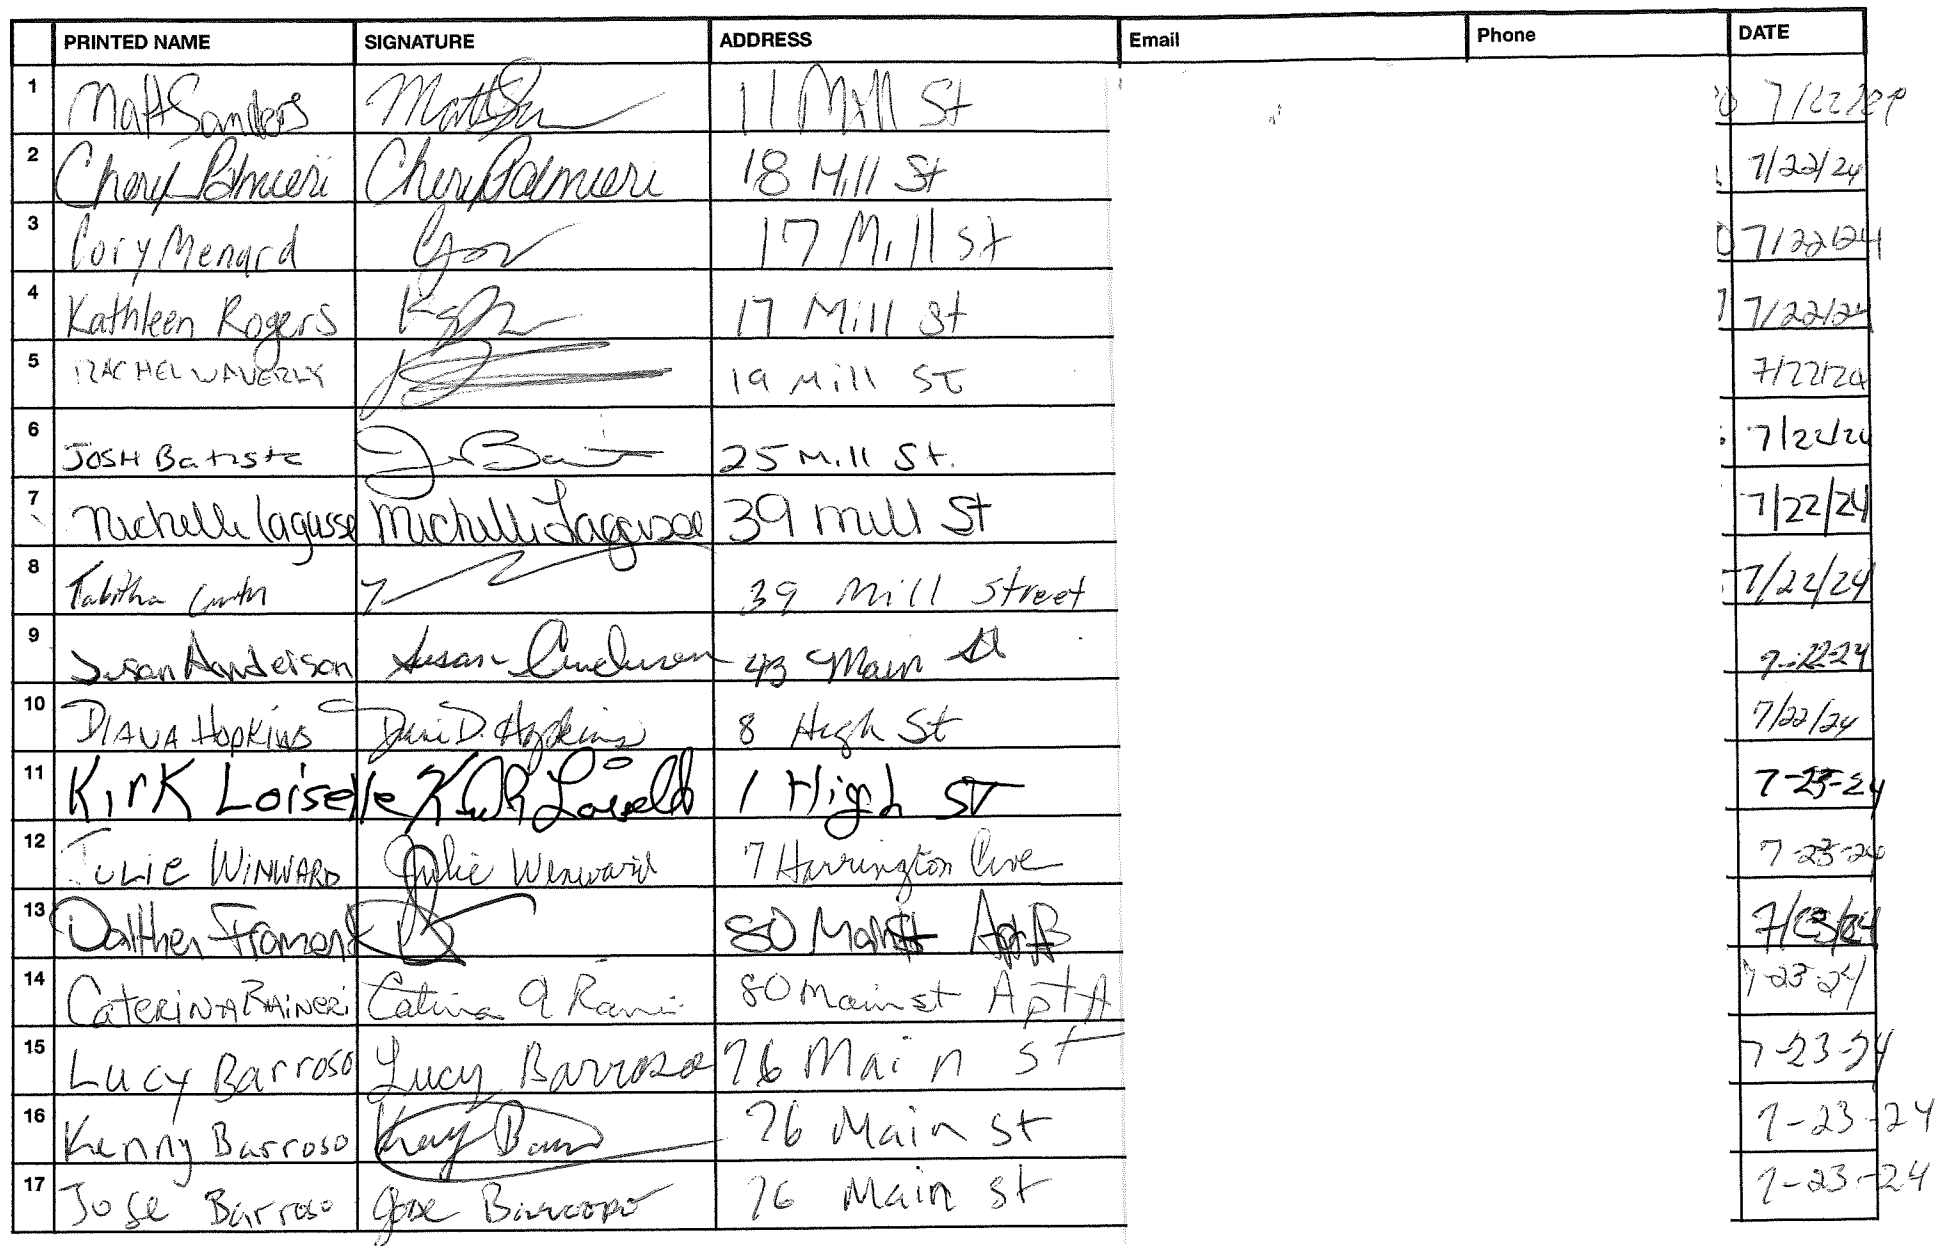 PRINTED NAME SIGNATURE ADDRESS Email Phone DATE
1 Matt Sanders 11 Mill St 7/22/24
2 Cheryl Palmieri Cheryl Palmieri 18 Mill St 7/22/24
3 Cory Menard 17 Mill St 7/22/24
4 Kathleen Rogers 17 Mill St 7/22/24
5 RACHEL WAVERLY 19 Mill ST 7/22/24
6 JOSH Batista 25 Mill St. 7/22/24
7 Michelle Lagasse Michelle Lagasse 39 Mill St 7/22/24
8 Tabitha 39 Mill Street 7/22/24
9 Susan Anderson Susan Anderson 43 Main St 7-22-24
10 DIANA HOPKINS D. Hopkins 8 High St 7/22/24
11 Kirk Loiselle Kirk Loiselle 1 High ST 7-23-24
12 JULIE WINWARD Julie Winward 7 Harrington Ave 7-23-24
13 Froment 80 Main St Apt B 7/23/24
14 CATERINA RAINERI 80 Main st Apt A 7-23-24
15 Lucy Barroso Lucy Barroso 76 Main st 7-23-24
16 Kenny Barroso 76 Main st 7-23-24
17 Jose Barroso Jose Barroso 76 Main st 7-23-24